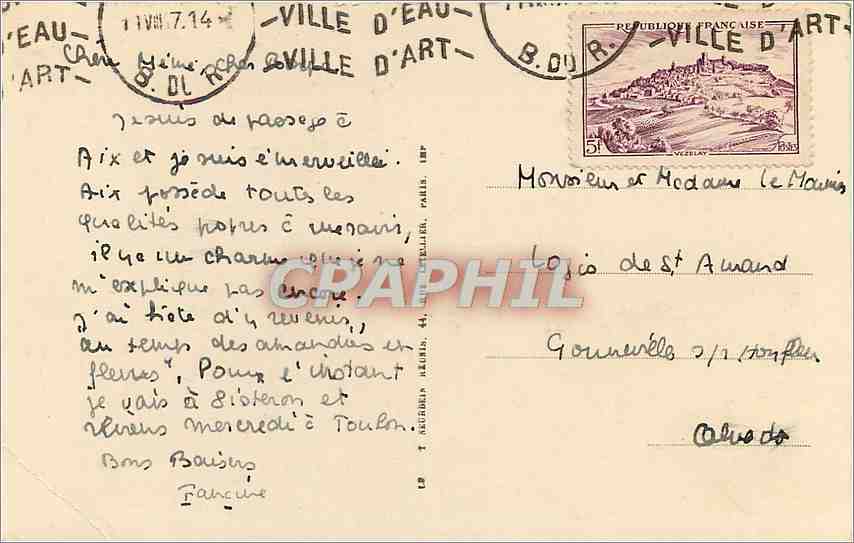 -VILLE D'EAU-
-VILLE D'ART-
D'EAU-
D'ART-
1 VIII 7.14
B. DU R.
B. DU R.
-VILLE D'EAU-
-VILLE D'ART-
REPUBLIQUE FRANÇAISE
5f
VEZELAY
Postes
Chère Mémé, Cher
Je suis de passage à
Aix et je suis émerveillée.
Aix possède toutes les
qualités propres à me ravir,
il y a un charme que je ne
m'explique pas encore.
J'ai hâte d'y revenir,
au temps des amandiers en
fleurs", Pour l'instant
je vais à Sisteron et
reviens mercredi à Toulon.
Bons Baisers
Francine
Monsieur et Madame le Marois
Logis de St Amand
Gonneville s/r Honfleur
Calvados
NEURDEIN RÉUNIS, 44, LETELLIER, PARIS. IMP
CPAPHIL